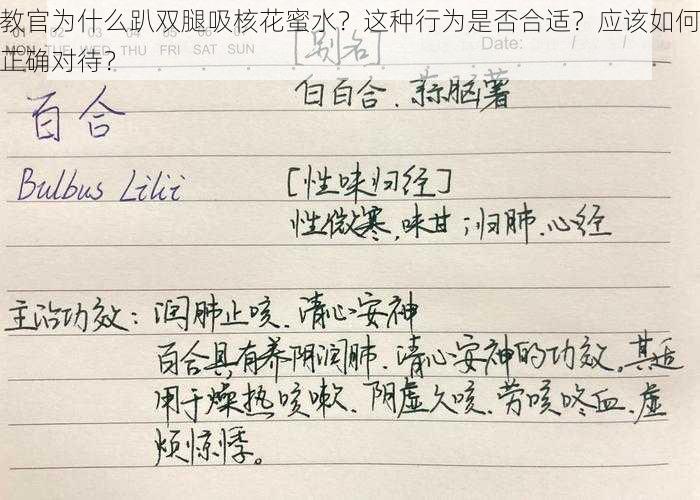 教官为什么趴双腿吸核花蜜水？这种行为是否合适？应该如何
正确对待？
MON TUE WED THU FRI SAT SUN
[别名]
百合
白百合、蒜脑薯
Bulbus Lilii
[性味归经]
性微寒，味甘；归肺、心经
主治功效：润肺止咳、清心安神
百合具有养阴润肺、清心安神的功效。其适
用于燥热咳嗽、阴虚久咳、劳咳咚血、虚
烦惊悸。